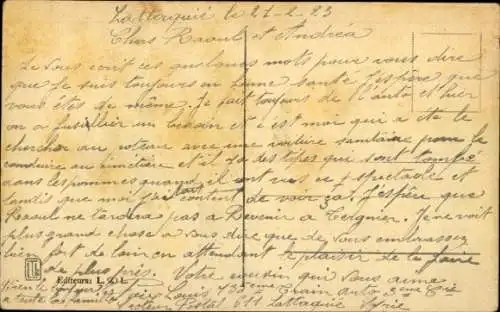 Lattaquié le 27-2-23
Chers Raoul et Andréa
Je vous écrit ces quelques mots pour vous dire
que Je suis toujours en bonne santé J'espère que
vous etes de même. Je fait toujours de l'auto et hier
on a fusillier un bedoin et c'est moi qui a ete le
chercher au poteau avec une voiture sanitaire pour le
conduire au cimetière et il y a des types qui sont tombé
dans les pommes quand il ont vus ce spectacle et
tandis que moi j'étais content de voir ça. J'espère que
Raoul ne tardera pas a Devenir a Tergnier. Je ne voit
plus grand chose a vous dire que de vous embrasser
bien fort de loin en attendant le plaisir de le faire
de plus près. Votre cousin qui vous aime
Editeurs: L. L.
toute la famille Louis 130eme Train auto 2eme Cie
Secteur Postal 611 Lattaquié Syrie